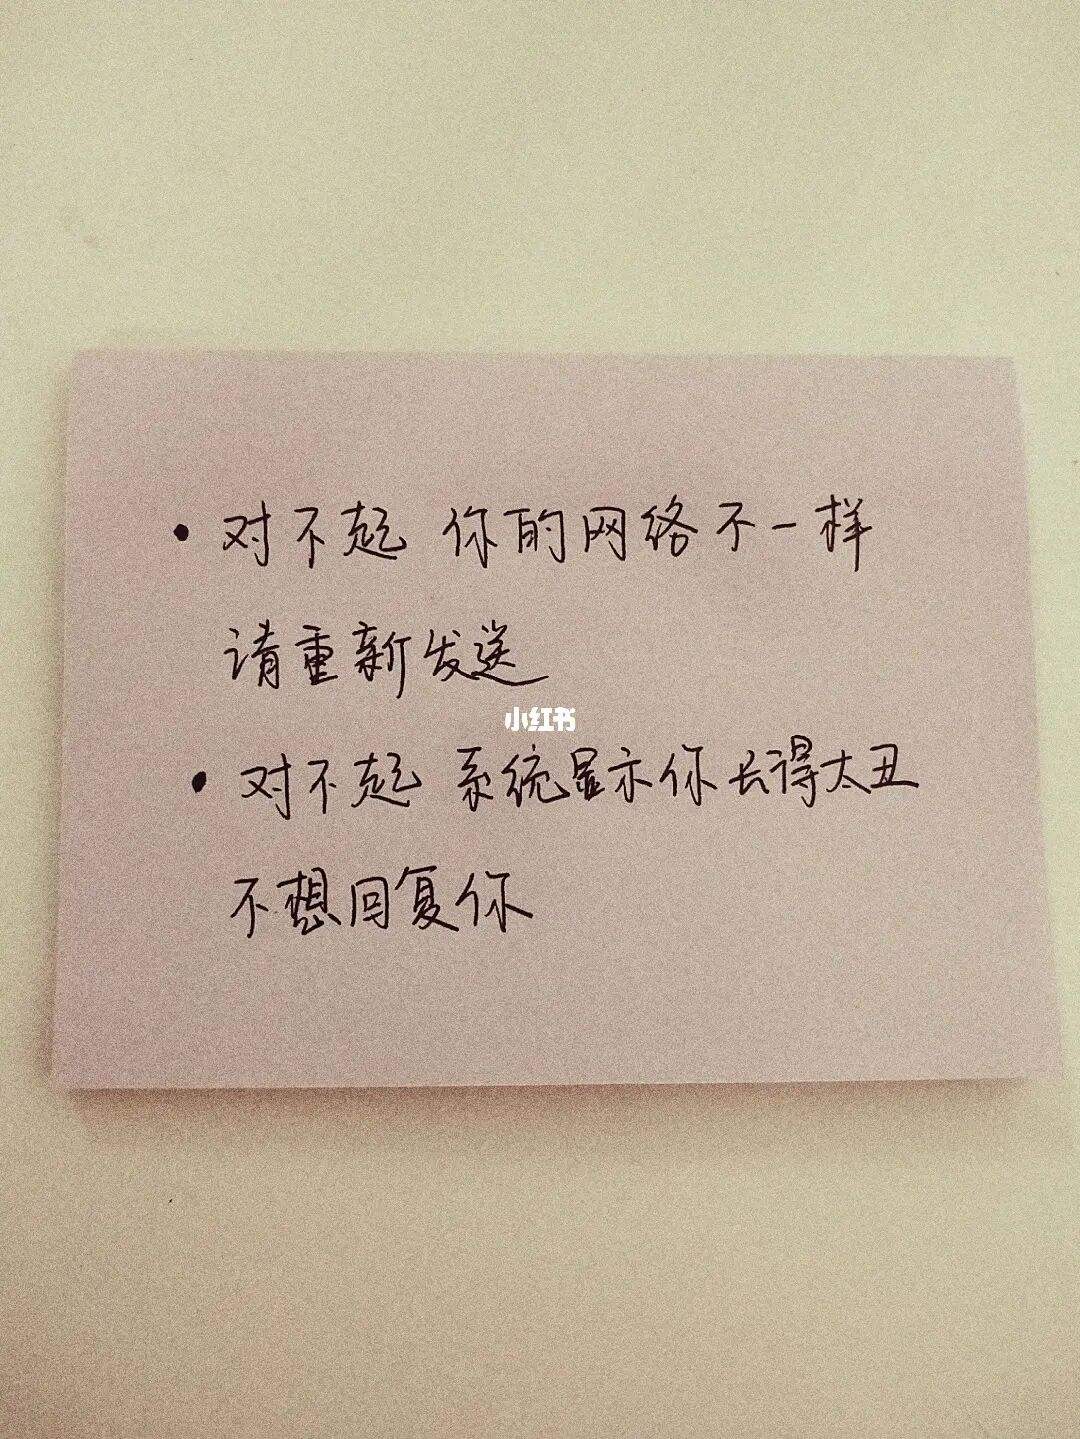 • 对不起 你的网络不一样
请重新发送
小红书
• 对不起 系统显示你长得太丑
不想回复你